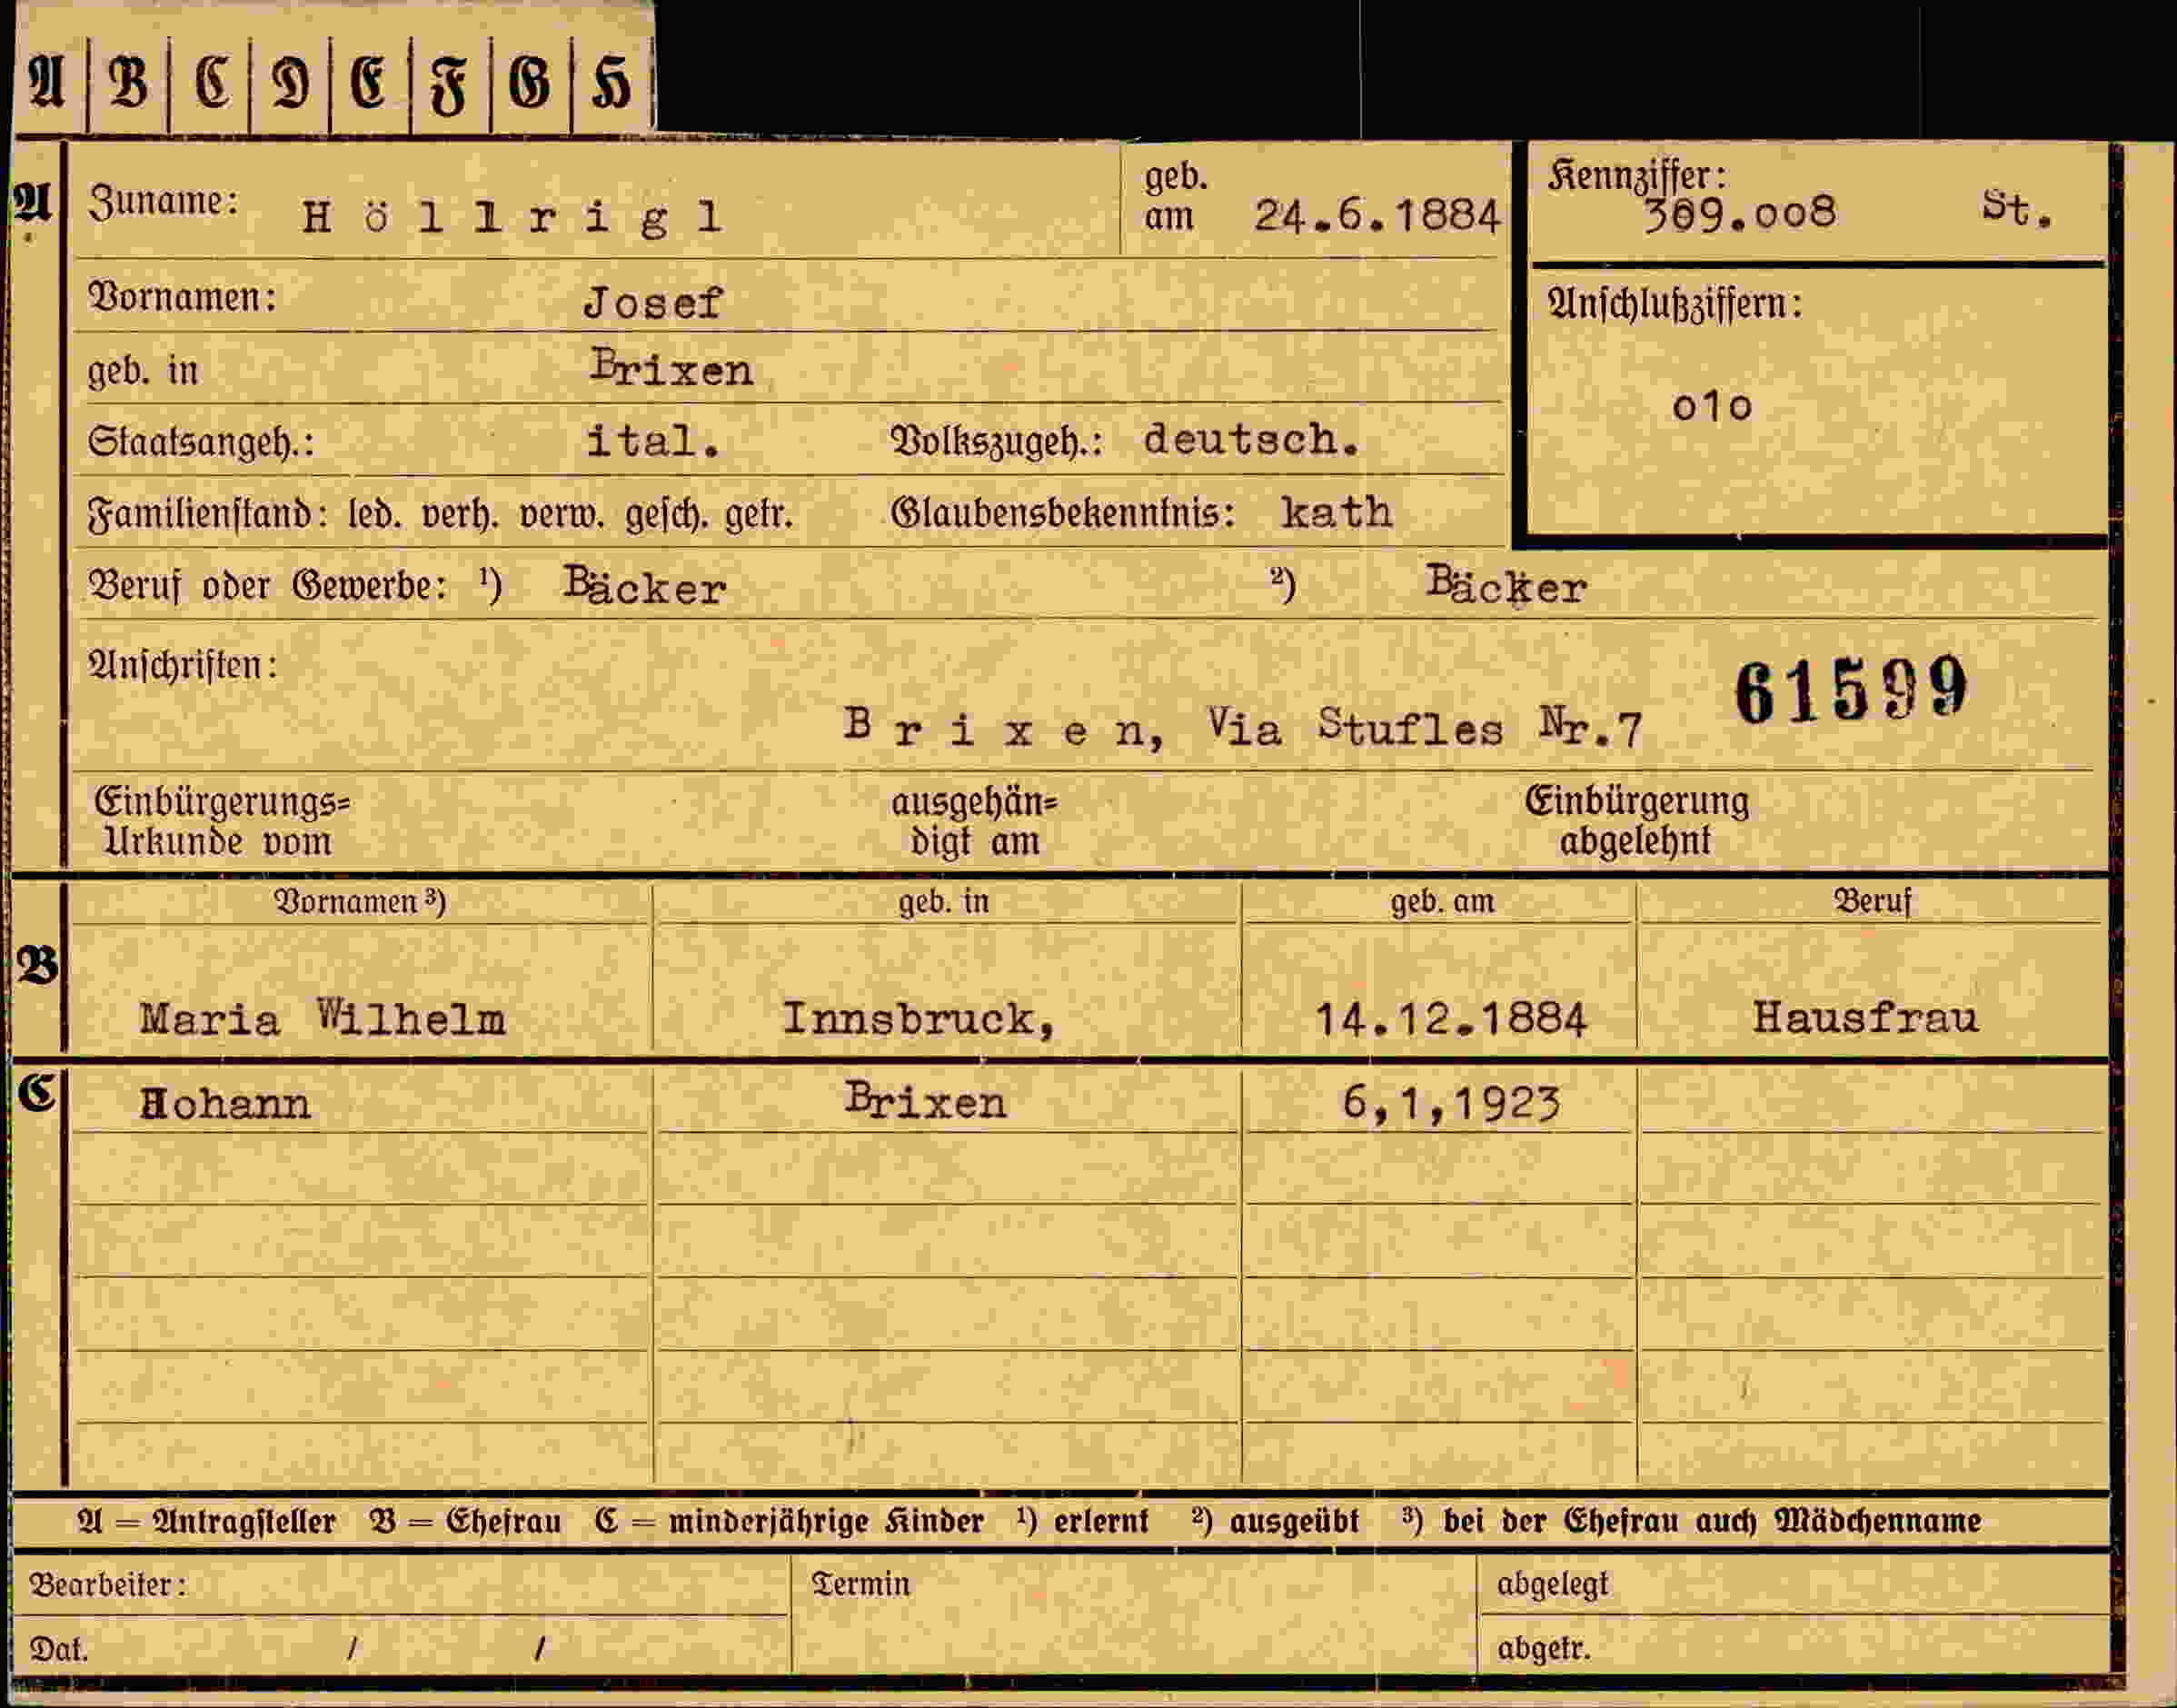 A B C D E F G H
A Zuname: Höllrigl geb. am 24.6.1884 Kennziffer: 309.oo8 St.
Vornamen: Josef Anschlußziffern:
geb. in Brixen o1o
Staatsangeh.: ital. Volkszugeh.: deutsch.
Familienstand: led. verh. verw. gesch. getr. Glaubensbekenntnis: kath
Beruf oder Gewerbe: ¹) Bäcker ²) Bäcker
Anschriften: 61599
Brixen, Via Stufles Nr.7
Einbürgerungs= ausgehän= Einbürgerung
Urkunde vom digt am abgelehnt
Vornamen ³) geb. in geb. am Beruf
B Maria Wilhelm Innsbruck, 14.12.1884 Hausfrau
C Hohann Brixen 6,1,1923
A = Antragsteller B = Ehefrau C = minderjährige Kinder ¹) erlernt ²) ausgeübt ³) bei der Ehefrau auch Mädchenname
Bearbeiter: Termin abgelegt
Dat. / / abgetr.